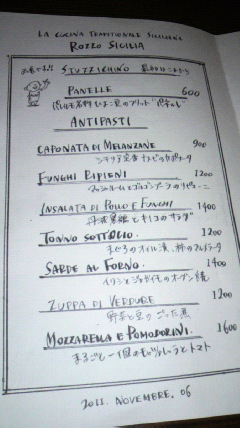 LA CUCINA TRADIZIONALE SICILIANA
ROZZO SICILIA
STUZZICHINO
PANELLE 600
ANTIPASTI
CAPONATA DI MELANZANE 900
シチリア定番 ナスのカポナータ
FUNGHI RIPIENI 1200
INSALATA DI POLLO E FUNGHI 1400
キノコのサラダ
TONNO SOTT'OLIO. 1200
まぐろのオイル漬、
SARDE AL FORNO. 1400
イワシとジャガイモのオーブン焼
ZUPPA DI VERDURE 1200
野菜と豆のごった煮
MOZZARELLA E POMODORINI. 1600
まるごと一個のモッツァレッラとトマト
2011. NOVEMBRE. 06